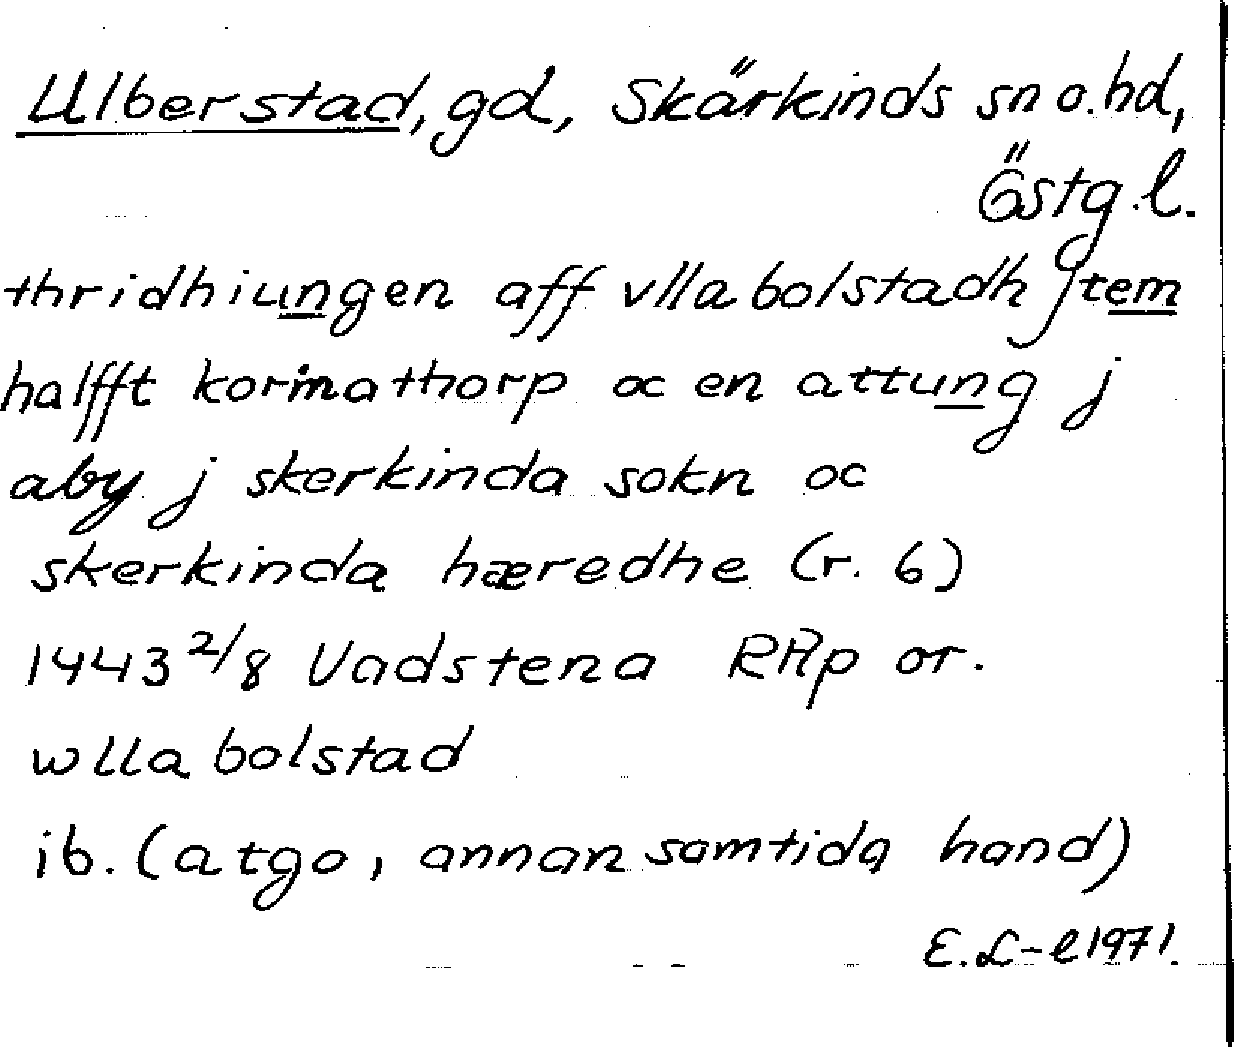 Ulberstad, gd, Skärkinds sn o. hd,
Östg. l.
thridhiungen aff vlla bolstadh Jtem
halfft kormathorp oc en attung j
aby j skerkinda sokn oc
skerkinda hæredhe (r. 6)
1443 2/8 Vadstena RAp or.
wlla bolstad
ib. (atgo, annan samtida hand)
E. L-l 1971.